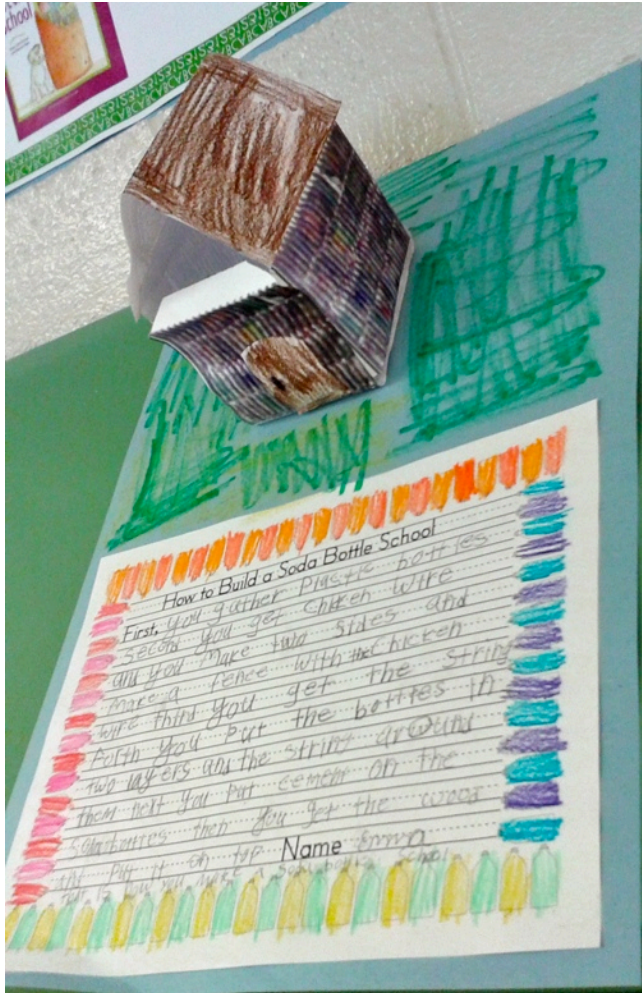 school
How to Build a Soda Bottle School
First, you gather Plastic bottles
Second you get chicken wire
and you make two sides and
make a fence with the chicken
wire third you get the string
forth you put the bottles in
two layers and the string around
them next you put cement on the
sodabottles then you get the wood
and put it on top
Name Emma
that is how you make a soda bottle school